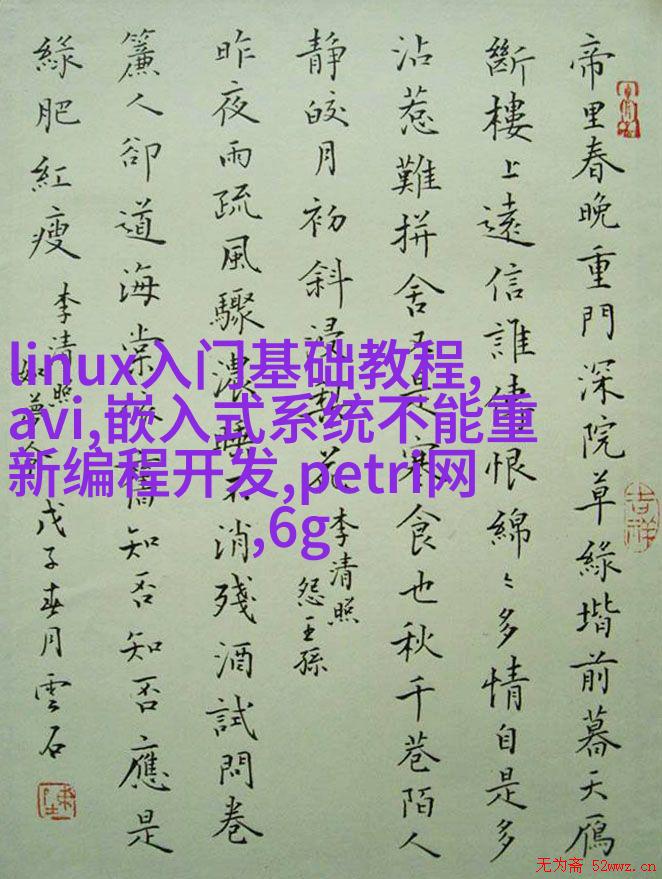 帝里春晚重門深院草緑堦前暮天鴈
斷樓上遠信誰傳恨綿〻多情自是多
沾惹難拼舍又是寒食也秋千巷陌人
靜皎月初斜浸梨花
李清照
怨王孫
昨夜雨疏風驟濃睡不消殘酒試問卷
簾人卻道海棠依舊知否知否應是
緑肥紅瘦
李清照
如夢令
戊子春月雲石
吉祥
linux入门基础教程,
avi,嵌入式系统不能重
新编程开发,petri网
,6g
无为斋 52wwz.cn